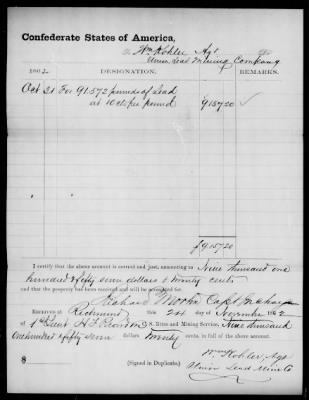 Confederate States of America,
To Wm Kohler Agt
Union Lead Mining Company
1862. DESIGNATION. REMARKS.
Oct 21 For 91.572 pounds of Lead
at 10 cts per pound 9157.20
$9,157.20
I certify that the above account is correct and just, amounting to Nine thousand one
hundred & fifty seven dollars & twenty cents
and that the property has been received and will be accounted for.
Richard Morton Capt In charge
RECEIVED at Richmond this 24 day of November 1862
of 1st Lieut. S. Nitre and Mining Service, Nine thousand
One hundred & fifty seven dollars twenty cents, in full of the above account.
Wm Kohler, Agt
8 (Signed in Duplicate.) Union Lead Mine Co